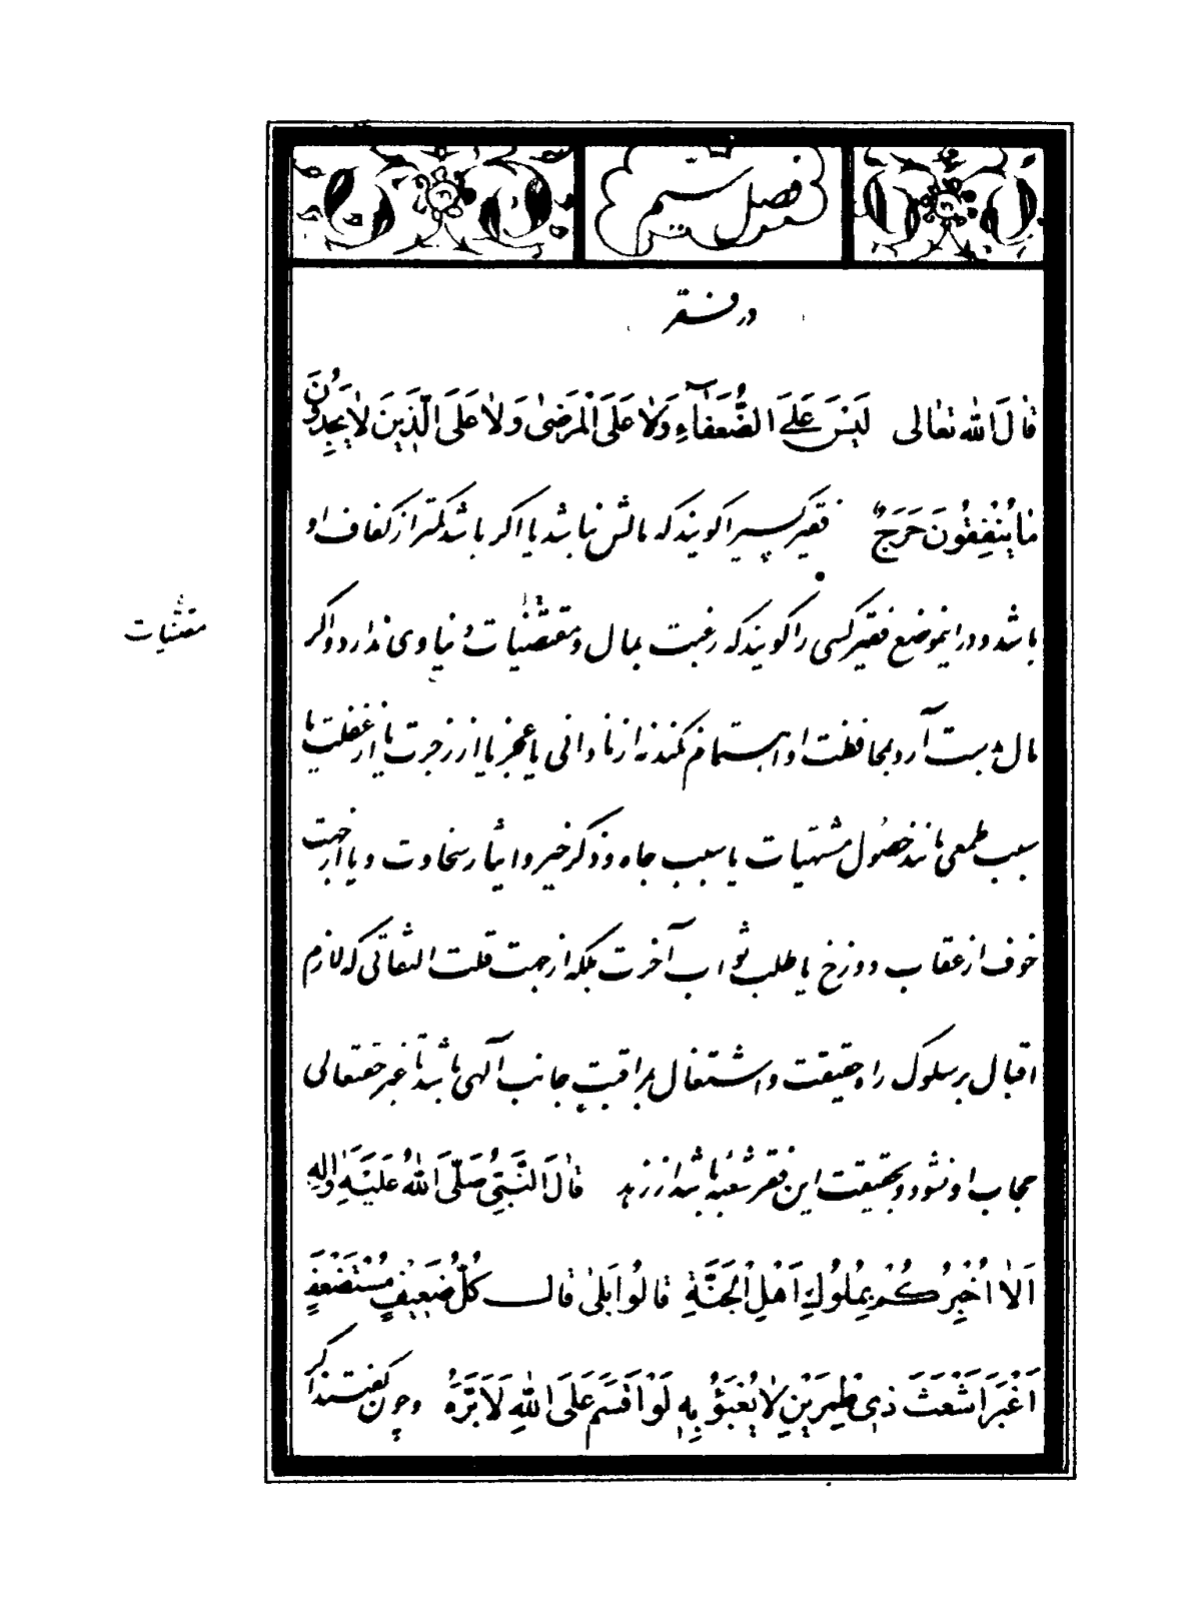 فصل سیم
در فقر
قالَ الله تعالى لَيْسَ عَلَى الضُّعَفَآءِ وَلا عَلَى الْمَرْضىٰ وَلا عَلَى الَّذِينَ لا يَجِدُونَ
ما يُنْفِقُونَ حَرَجٌ فقیر کسیرا کویند که مالش نباشد یا اکر باشد کمتر از کفاف او
باشد و در اینموضع فقیر کسی را کویند که رغبت بمال و مقتضیات دنیاوی ندارد و اکر
مال بدست آرد بمحافظت او اهتمام نکند نه از نادانی یا عجز یا از زجرت یا از غفلت یا
سبب طمعی مانند حصول مشتهیات یا بسبب جاه و ذکر خیر و ایثار سخاوت و یا از جهت
خوف از عقاب دوزخ یا طلب ثواب آخرت بلکه از جهت قلت التفاتی که لازم
اقبال بر سلوک راه حقیقت و اشتغال بمراقبت جانب آلهی باشد تا غیر حقتعالی
حجاب او نشود و بحقیقت این فقر شعبه باشد از زهد قالَ النَّبِيُّ صَلَّى اللهُ عَلَيْهِ وَالِهِ
اَلا اُخْبِرُكُمْ بِمُلُوكِ اَهْلِ الْجَنَّةِ قالُوا بَلىٰ قال كُلُّ ضَعِيفٍ مُسْتَضْعَفٍ
اَغْبَرَ اَشْعَثَ ذى طِمِرَيْنِ لا يُعْبَؤُ بِهِ لَوْ اَقْسَمَ عَلَى اللهِ لَاَبَرَّهُ و چون کفتند اکر
مقتنیات